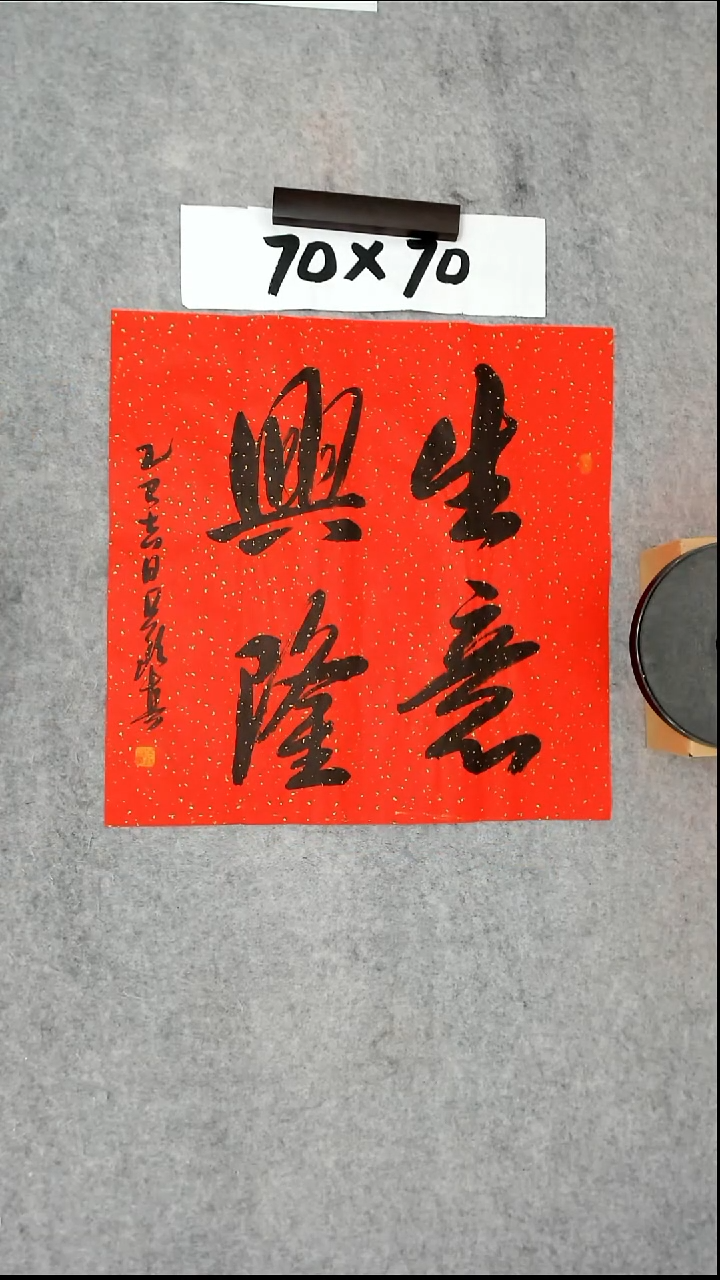 70×70
生意
興隆
乙巳吉日